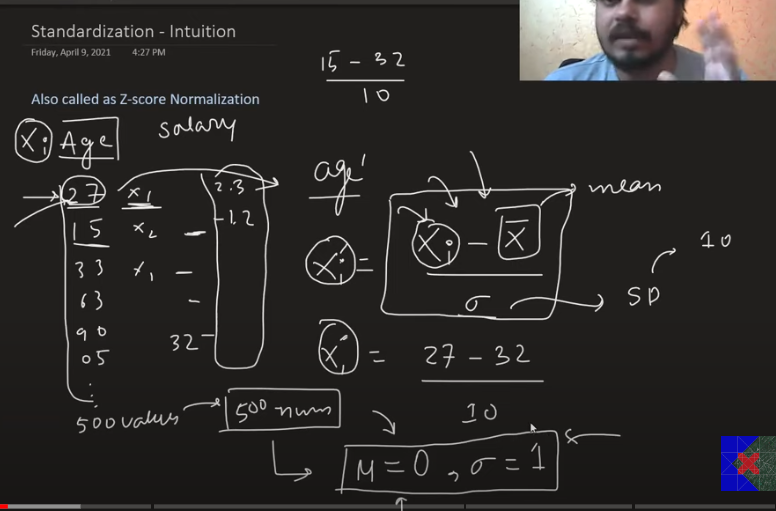 Standardization - Intuition
Friday, April 9, 2021 4:27 PM
15 - 32
10
Also called as Z-score Normalization
Xi Age salary
27 x1 2.3
15 x2 - -1.2
33 x1 -
63 -
90
05
32 -
⋮
500 values → 500 nums
age'
Xi' = Xi - X̄
σ
mean
SD
10
Xi' = 27 - 32
10
μ = 0, σ = 1